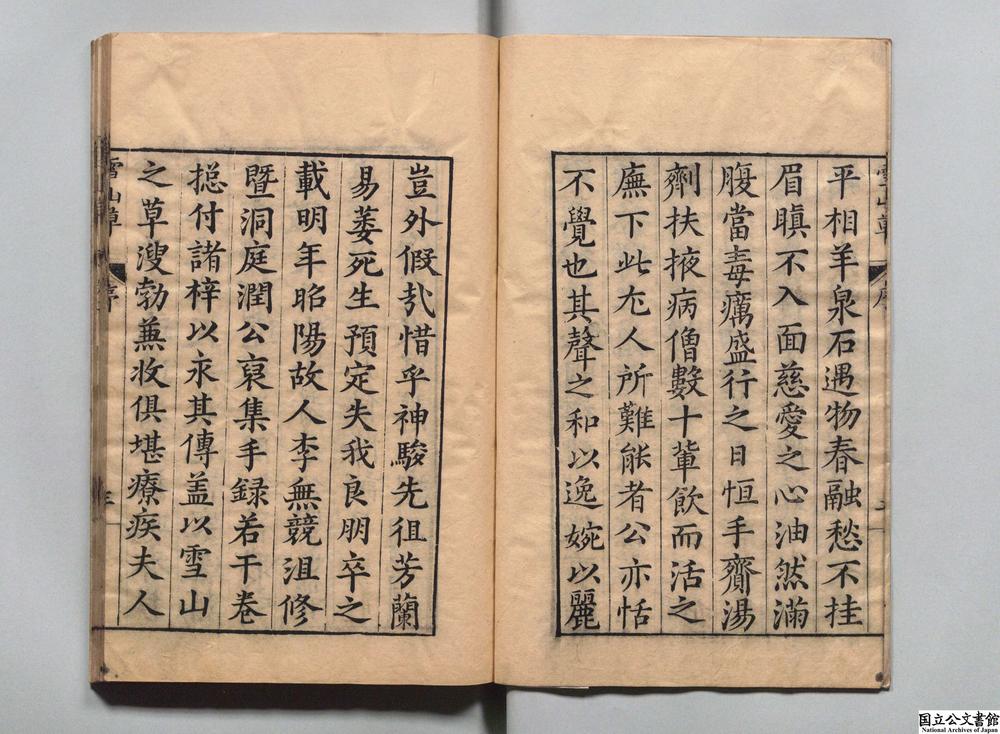 平相羊泉石遇物春融愁不挂
眉瞋不入面慈愛之心油然滿
腹當毒癘盛行之日恒手齎湯
劑扶掖病僧數十輩飲而活之
廡下此尢人所難能者公亦恬
不覺也其聲之和以逸婉以麗
豈外假㢤惜乎神駿先徂芳蘭
易萎死生預定失我良朋卒之
載明年昭陽故人李無競沮修
暨洞庭潤公裒集手録若干卷
捴付諸梓以永其傳盖以雪山
之草溲勃蒹收俱堪療疾夫人
雪山草 序 三
国立公文書館
National Archives of Japan